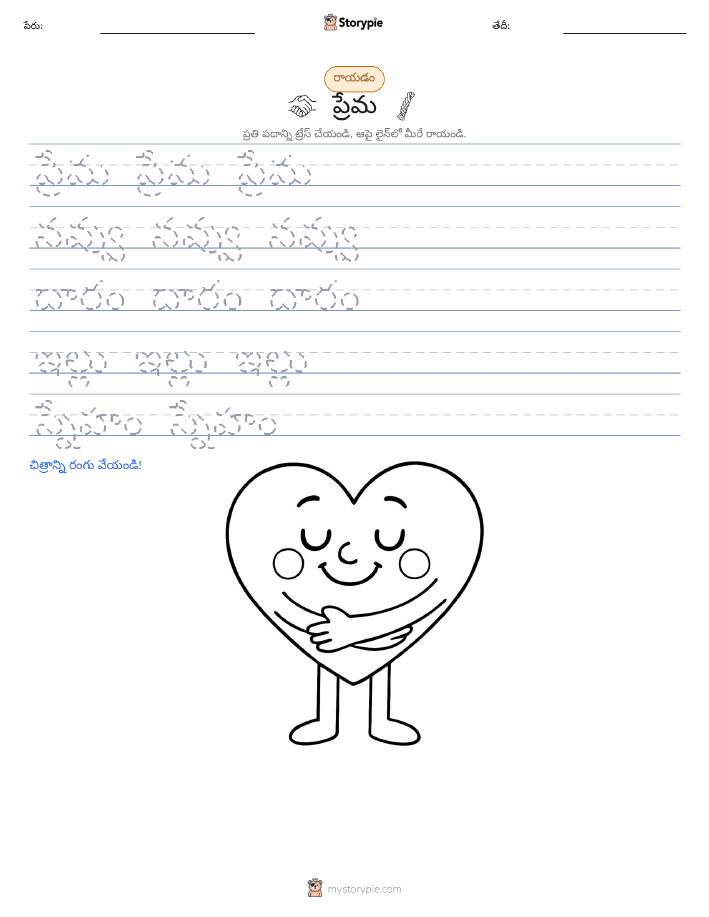 పేరు: Storypie తేదీ:
రాయడం
ప్రేమ
ప్రతి పదాన్ని ట్రేస్ చేయండి, ఆపై లైన్‌లో మీరే రాయండి.
ప్రేమ ప్రేమ ప్రేమ
నవ్వు నవ్వు నవ్వు
దారం దారం దారం
ఇల్లు ఇల్లు ఇల్లు
స్నేహం స్నేహం
చిత్రాన్ని రంగు వేయండి!
mystorypie.com